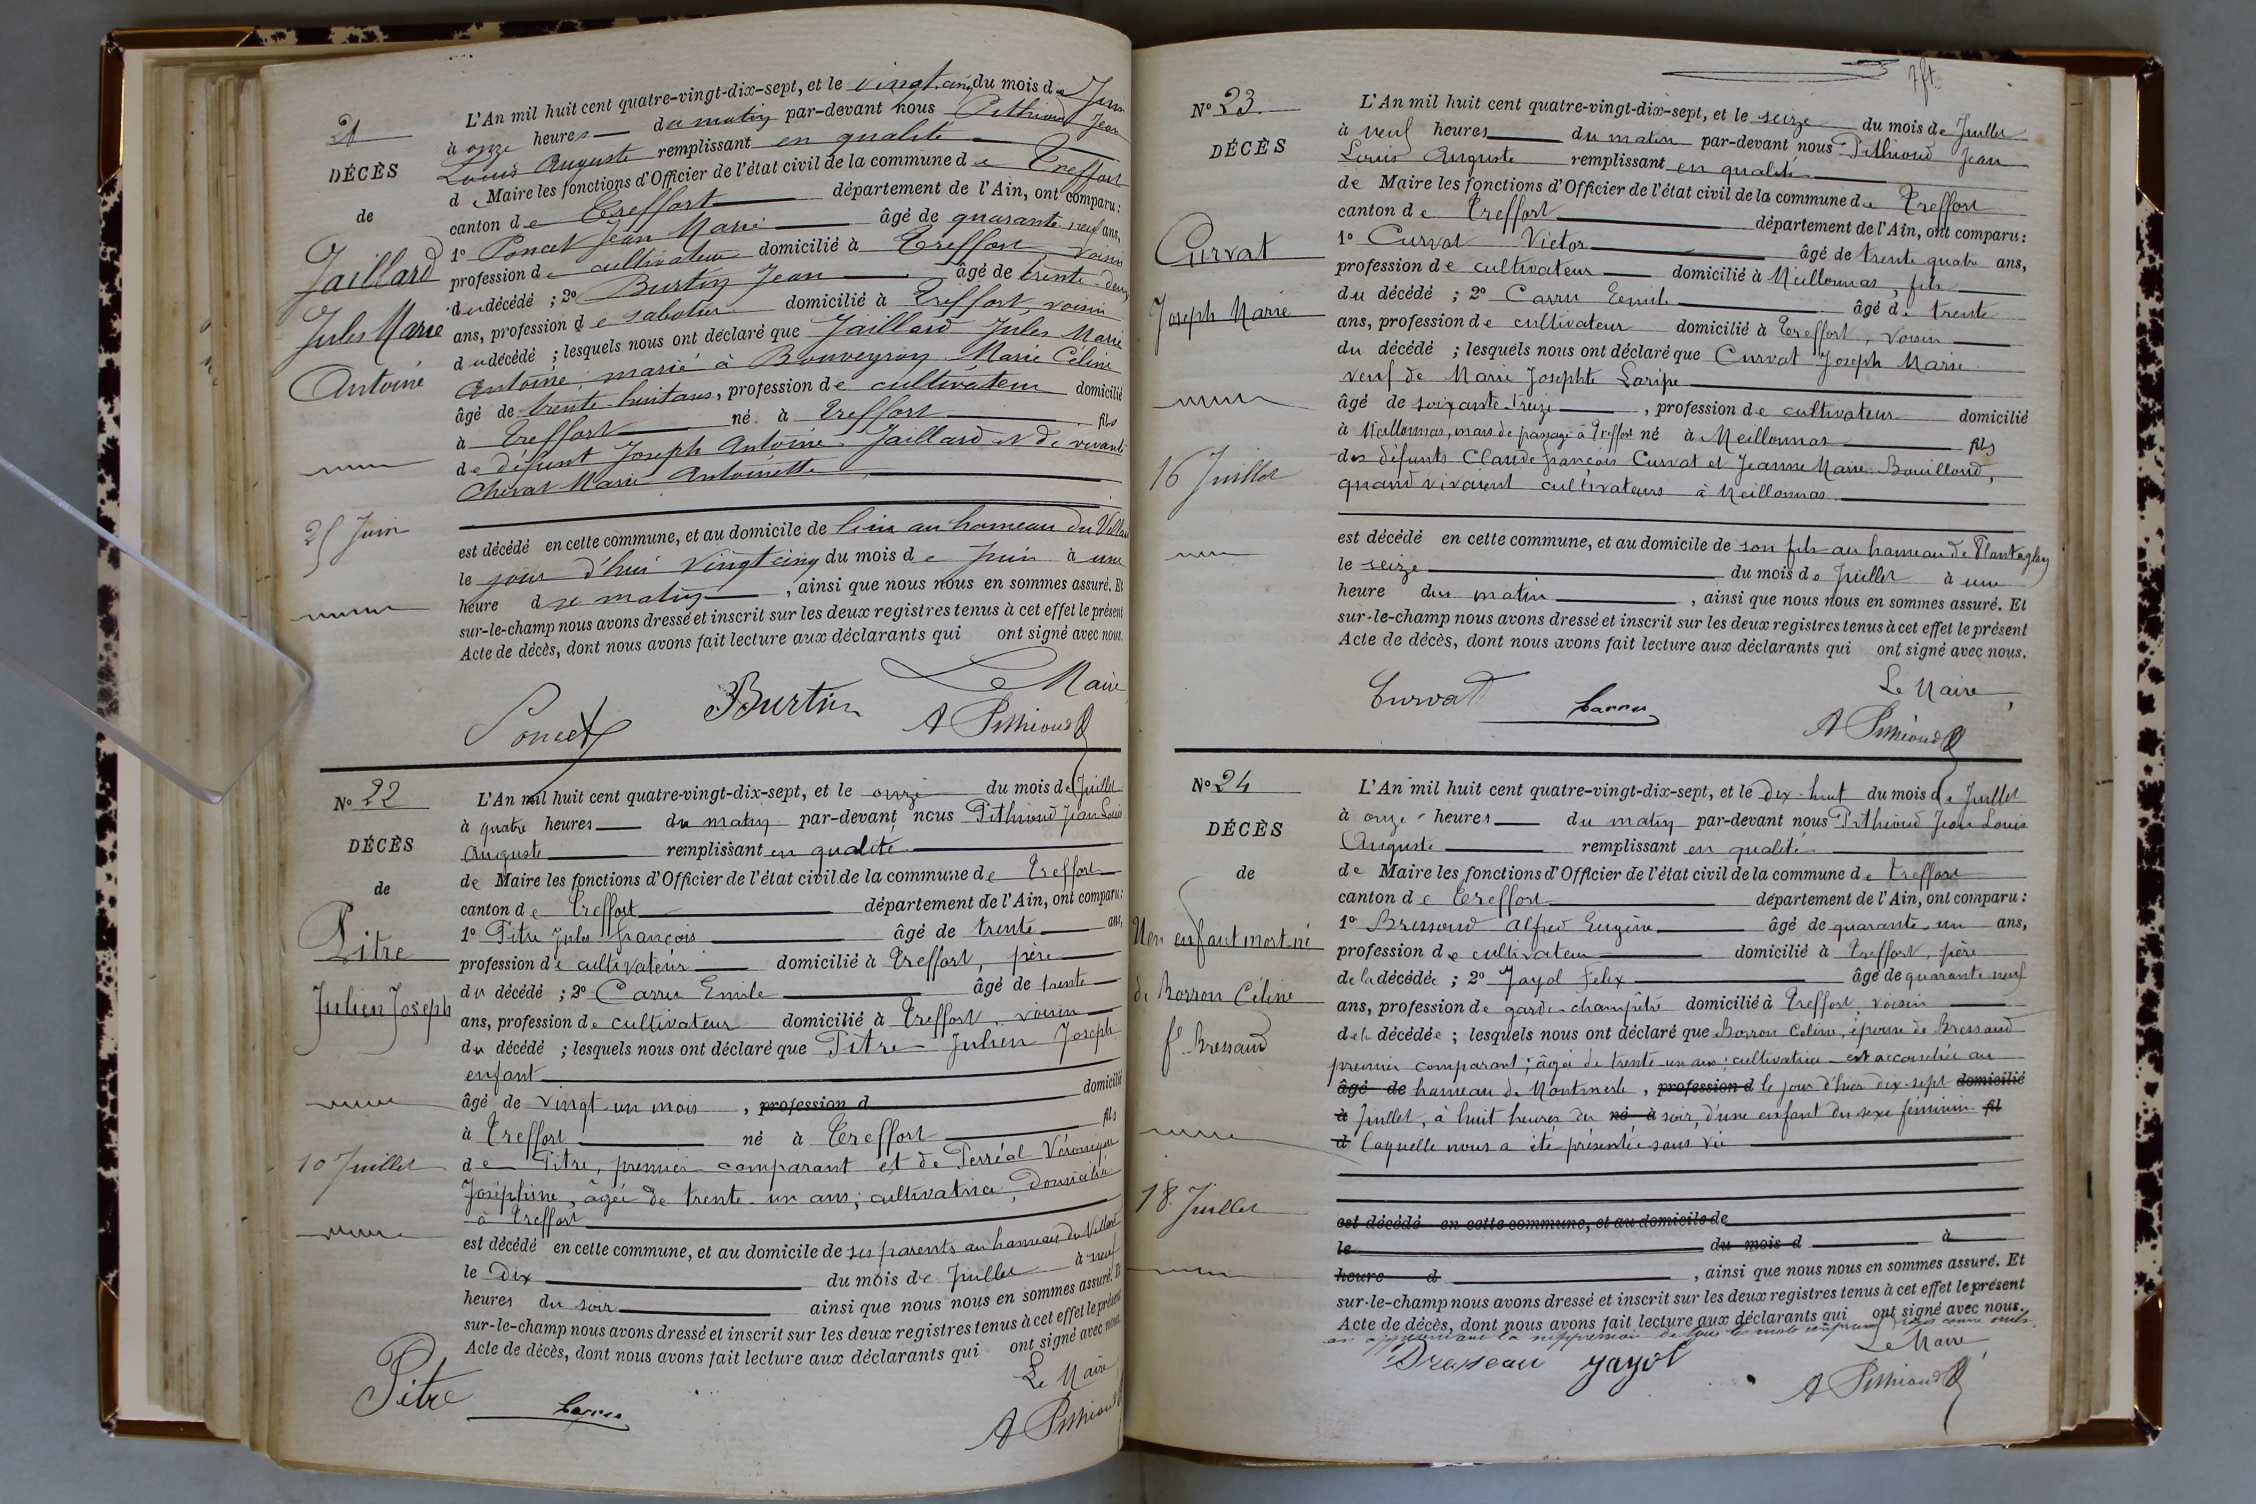 21
DÉCÈS
de
Jaillard
Jules Marie
Antoine
25 Juin
L'An mil huit cent quatre-vingt-dix-sept, et le vingt cinq du mois de Juin
à onze heures du matin par-devant nous Pithioud Jean
Louis Auguste remplissant en qualité
de Maire les fonctions d'Officier de l'état civil de la commune de Treffort
canton de Treffort département de l'Ain, ont comparu :
1º Poncet Jean Marie âgé de quarante neuf ans,
profession de cultivateur domicilié à Treffort voisin
du décédé ; 2º Burtin Jean âgé de trente-deux
ans, profession de sabotier domicilié à Treffort, voisin
du décédé ; lesquels nous ont déclaré que Jaillard Jules Marie
Antoine, marié à Bouveyron Marie Céline
âgé de trente-huit ans, profession de cultivateur domicilié
à Treffort né à Treffort fils
de défunt Joseph Antoine Jaillard et de vivante
Chevat Marie Antoinette
est décédé en cette commune, et au domicile de lui au hameau du Villard
le jour d'hui vingt cinq du mois de Juin à une
heure du matin, ainsi que nous nous en sommes assuré. Et
sur-le-champ nous avons dressé et inscrit sur les deux registres tenus à cet effet le présent
Acte de décès, dont nous avons fait lecture aux déclarants qui ont signé avec nous.
Le Maire
Poncet Burtin A Pithioud
Nº 22
DÉCÈS
de
Pitre
Julien Joseph
10 Juillet
L'An mil huit cent quatre-vingt-dix-sept, et le onze du mois de Juillet
à quatre heures du matin par-devant nous Pithioud Jean Louis
Auguste remplissant en qualité
de Maire les fonctions d'Officier de l'état civil de la commune de Treffort
canton de Treffort département de l'Ain, ont comparu :
1º Pitre Jules françois âgé de trente ans,
profession de cultivateur domicilié à Treffort, père
du décédé ; 2º Carru Emile âgé de trente
ans, profession de cultivateur domicilié à Treffort, voisin
du décédé ; lesquels nous ont déclaré que Pitre Julien Joseph
enfant
âgé de vingt un mois, profession d domicilié
à Treffort né à Treffort fils
de Pitre, premier comparant et de Perréal Véronique
Joséphine, âgée de trente-un ans, cultivatrice, domiciliée
à Treffort
est décédé en cette commune, et au domicile de ses parents au hameau du Villard
le Dix du mois de Juillet à neuf
heures du soir ainsi que nous nous en sommes assuré. Et
sur-le-champ nous avons dressé et inscrit sur les deux registres tenus à cet effet le présent
Acte de décès, dont nous avons fait lecture aux déclarants qui ont signé avec nous.
Le Maire
Pitre Carru A Pithioud
Nº 23
DÉCÈS
Curvat
Joseph Marie
16 Juillet
L'An mil huit cent quatre-vingt-dix-sept, et le seize du mois de Juillet
à neuf heures du matin par-devant nous Pithioud Jean
Louis Auguste remplissant en qualité
de Maire les fonctions d'Officier de l'état civil de la commune de Treffort
canton de Treffort département de l'Ain, ont comparu :
1º Curvat Victor âgé de trente quatre ans,
profession de cultivateur domicilié à Meillonnas, fils
du décédé ; 2º Carru Emile âgé de trente
ans, profession de cultivateur domicilié à Treffort, voisin
du décédé ; lesquels nous ont déclaré que Curvat Joseph Marie
veuf de Marie Josephte Laripe
âgé de soixante-treize, profession de cultivateur domicilié
à Meillonnas, mais de passage à Treffort né à Meillonnas fils
des défunts Claude françois Curvat et Jeanne Marie Bouilloud,
quand vivaient cultivateurs à Meillonnas
est décédé en cette commune, et au domicile de son fils au hameau de Plantaglay
le seize du mois de Juillet à une
heure du matin, ainsi que nous nous en sommes assuré. Et
sur-le-champ nous avons dressé et inscrit sur les deux registres tenus à cet effet le présent
Acte de décès, dont nous avons fait lecture aux déclarants qui ont signé avec nous.
Le Maire,
Curvat Carru A Pithioud
Nº 24
DÉCÈS
de
Un enfant mort né
de Borron Céline
fe Bressaud
18 Juillet
L'An mil huit cent quatre-vingt-dix-sept, et le dix-huit du mois de Juillet
à onze heures du matin par-devant nous Pithioud Jean Louis
Auguste remplissant en qualité
de Maire les fonctions d'Officier de l'état civil de la commune de Treffort
canton de Treffort département de l'Ain, ont comparu :
1º Bressoud Alfred Eugène âgé de quarante-un ans,
profession de cultivateur domicilié à Treffort, père
de la décédée ; 2º Jayol Felix âgé de quarante neuf
ans, profession de garde-champêtre domicilié à Treffort, voisin
de la décédée ; lesquels nous ont déclaré que Borron Celine, épouse de Bressaud
premier comparant, âgée de trente-un ans, cultivatrice est accouchée au
âgé de hameau de Montmerle, profession d le jour d'hier dix-sept domicilié
à Juillet, à huit heures du né à soir, d'une enfant du sexe féminin fil
d laquelle nous a été présentée sans vie
est décédé en cette commune, et au domicile de
le du mois d à
heure d, ainsi que nous nous en sommes assuré. Et
sur-le-champ nous avons dressé et inscrit sur les deux registres tenus à cet effet le présent
Acte de décès, dont nous avons fait lecture aux déclarants qui ont signé avec nous.
en approuvant la suppression de tous les mots imprimés rayés comme nuls.
Le Maire
Jayol A Pithioud